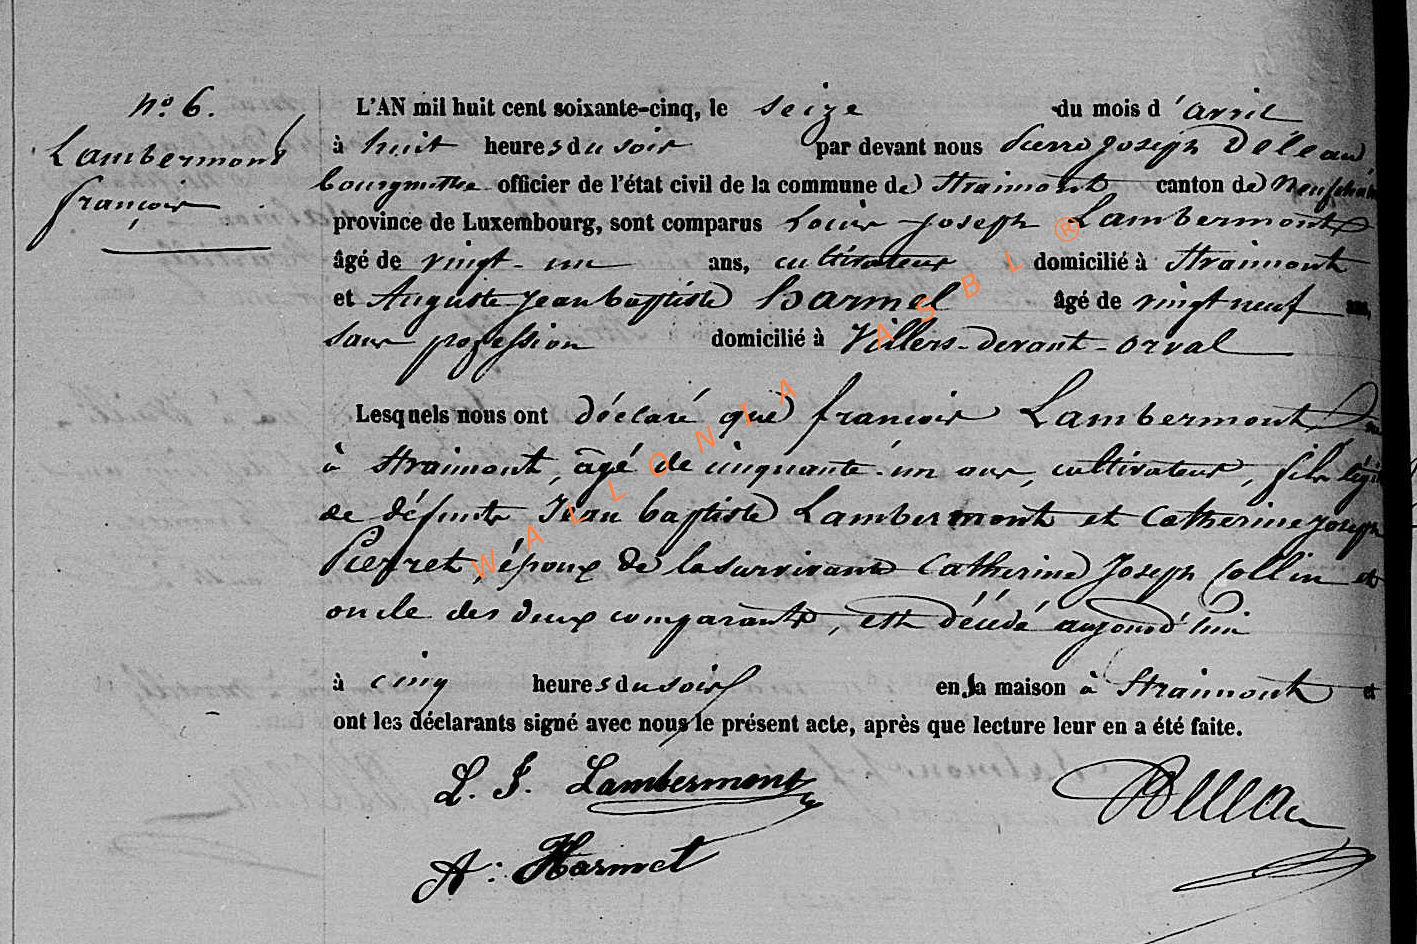 n° 6.
Lambermont
françois
L'AN mil huit cent soixante-cinq, le seize du mois d'avril
à huit heures du soir par devant nous Pierre Joseph Déleau
bourgmestre officier de l'état civil de la commune de Straimont canton de Neufchâteau
province de Luxembourg, sont comparus Louis Joseph Lambermont
âgé de vingt-un ans, cultivateur domicilié à Straimont
et Auguste Jean baptiste Harmel âgé de vingt neuf ans,
sans profession domicilié à Villers-devant-orval
Lesquels nous ont déclaré que françois Lambermont
à Straimont, âgé de cinquante-un ans, cultivateur, fils légi
de défunts Jean baptiste Lambermont et Catherine Joseph
Pierret, époux de la survivante Catherine Joseph Collin et
oncle des deux comparants, est décédé aujourd'hui
à cinq heures du soir en sa maison à Straimont et
ont les déclarants signé avec nous le présent acte, après que lecture leur en a été faite.
L. J. Lambermont
A. Harmel
WALLONIA ASBL ®